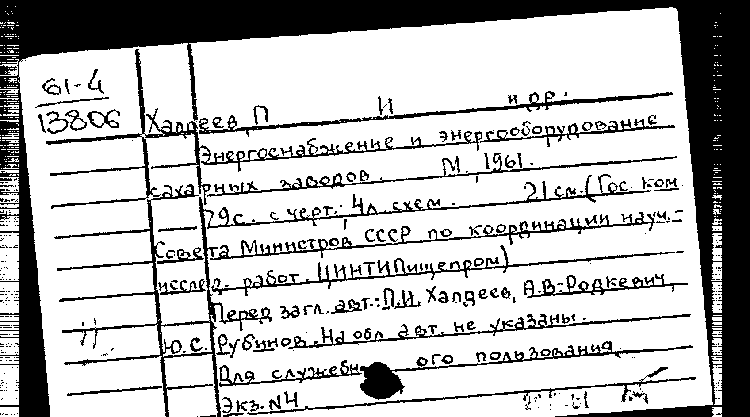 61-4
13806
Халдеев, П И и др.
Энергоснабжение и энергооборудование
сахарных заводов. М., 1961.
79с. с черт.; 4л. схем. 21 см. (Гос. ком.
Совета Министров СССР по координации науч.-
исслед. работ. ЦИНТИПищепром)
Перед загл. авт.: П.И. Халдеев, А.В. Родкевич,
Ю.С. Рубинов. На обл. авт. не указаны.
Для служебн ого пользования.
Экз. №4.